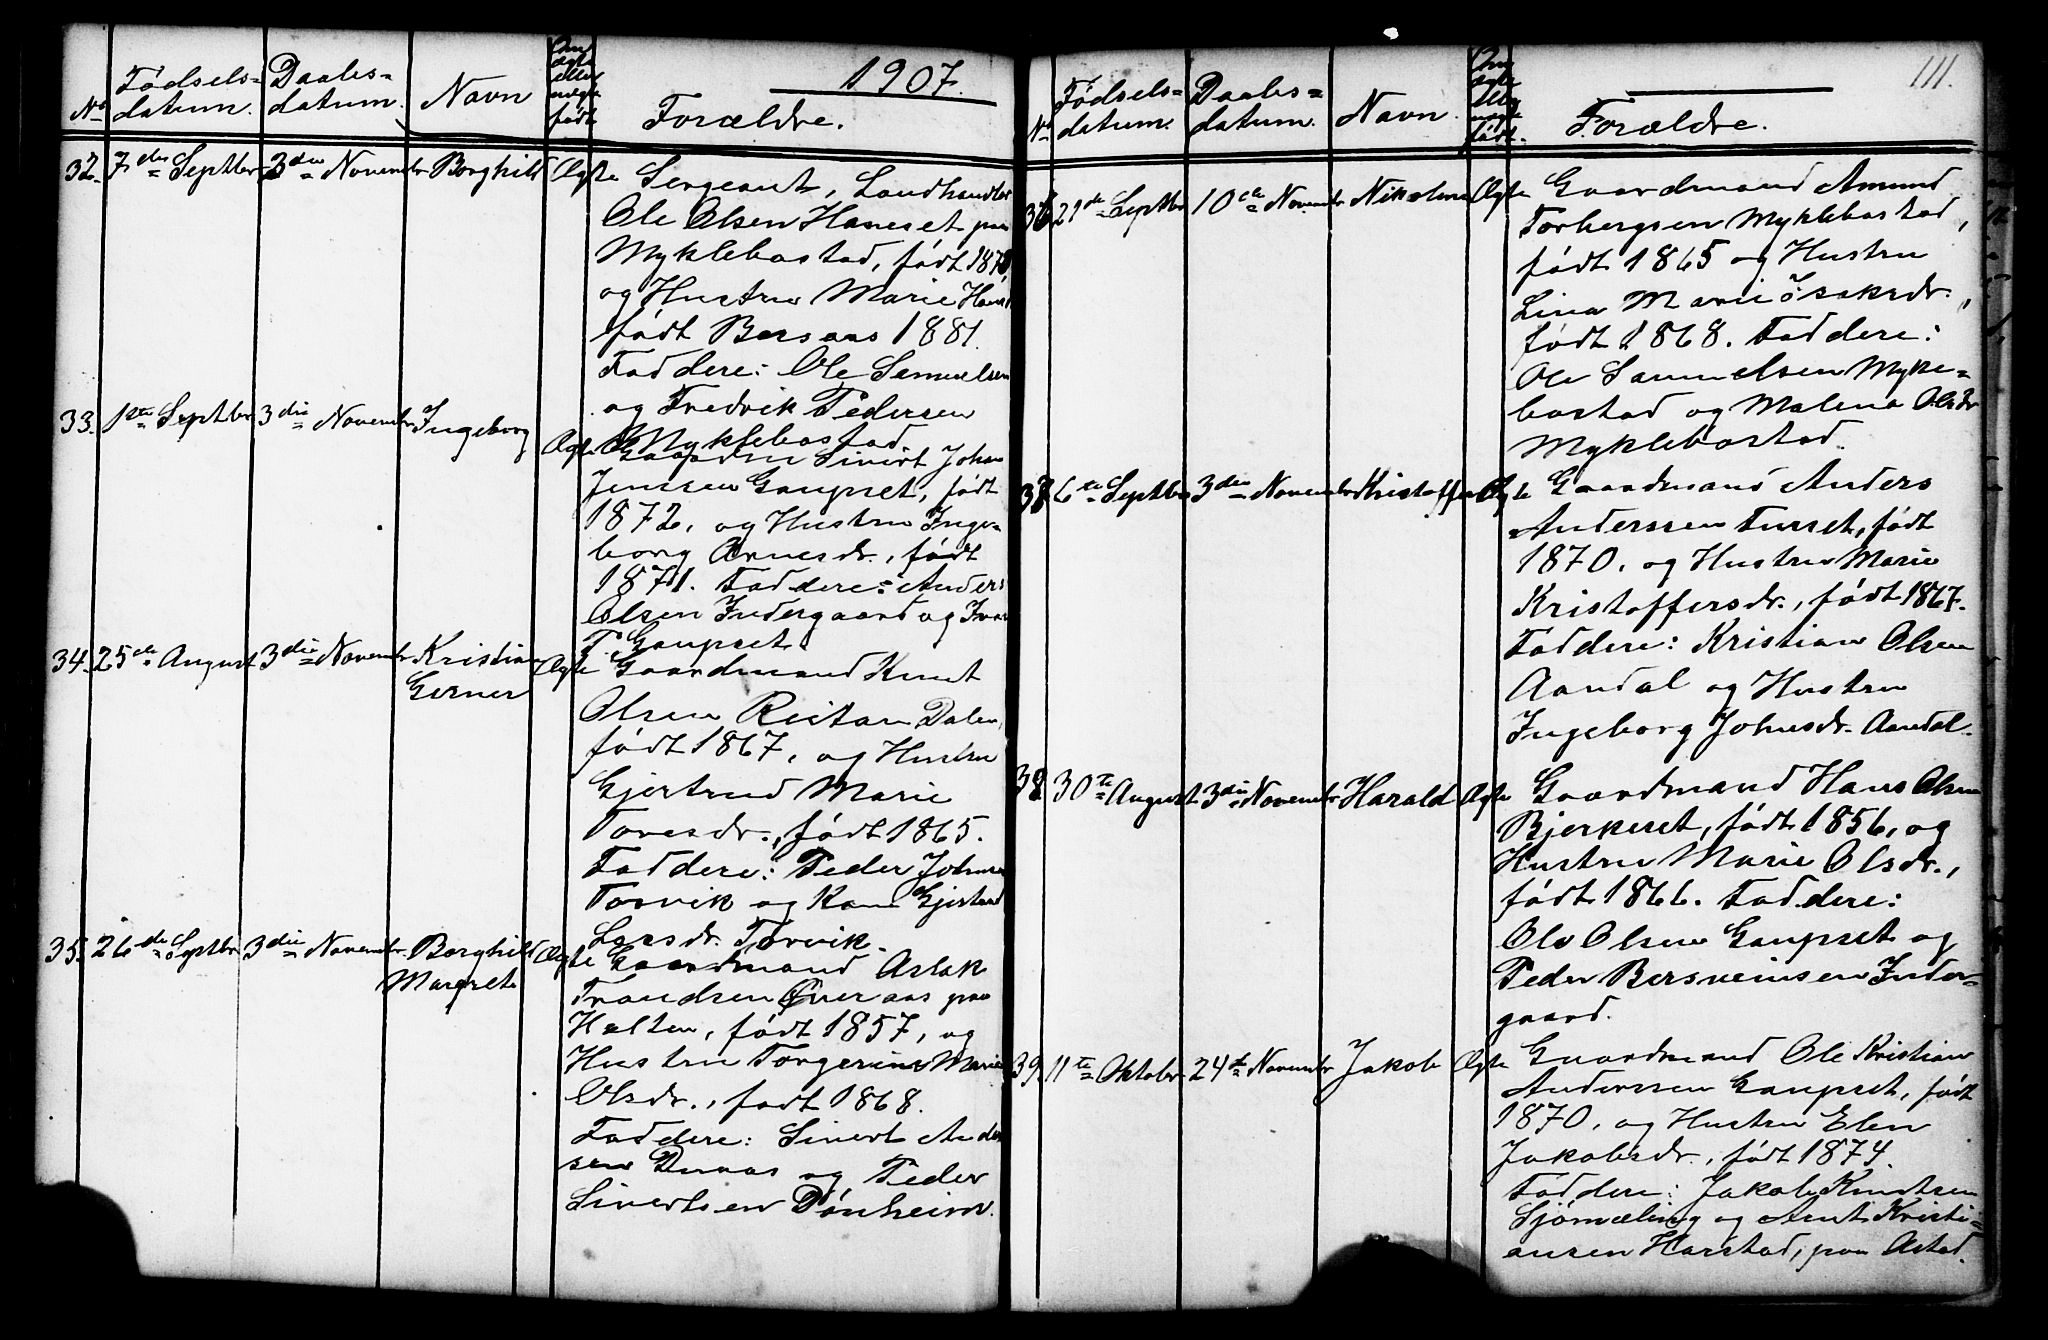 1907.
No
Fødsels=
datum.
Daabs=
datum.
Navn
Om
ægte
eller
uægte
født
Forældre.
32. 7de Septbr 3die Novembr Borghild Ægte
Sergeant, Landhandler
Ole Olsen Haneset paa
Myklebostad, født 1870,
og Hustru Marie
født Bersaas 1881.
Faddere: Ole Samuelsen
og Fredrik Pedersen
Myklebostad.
33. 1ste Septbr 3die Novembr Ingeborg Ægte
Gaardm Sivert Johan
Jenssen Gaupset, født
1872, og Hustru Inge=
borg Arnesdr., født
1871. Faddere: Anders
Olsen Indergaard og Ivar
T. Gaupset.
34. 25de August 3die Novembr Kristian
Gerner
Ægte
Gaardmand Knut
Olsen Reistan Dalen,
født 1867, og Hustru
Gjertrud Marie
Toresdr., født 1865.
Faddere: Peder Johnsen
Torvik og Kone Gjertrud
Larsdr. Torvik.
35. 26de Septbr. 3die Novembr. Borghild
Margrete
Ægte
Gaardmand Aslak
Trondsen Øveraas paa
Holten, født 1857, og
Hustru Torgerine Marie
Olsdr., født 1868.
Faddere: Sivert Anders
sen Duraas og Peder
Sivertsen Dønheim.
111.
No
Fødsels=
datum.
Daabs=
datum.
Navn.
Om
ægte
eller
uægte
født.
Forældre.
36. 21de Septbr 10de Novembr Nikoline Ægte
Gaardmand Amund
Torbergsen Myklebostad,
født 1865 og Hustru
Lina Marie Isaksdr.,
født 1868. Faddere:
Ole Samuelsen Mykle=
bostad og Malena Olsdr
Myklebostad.
37. 6te Septbr 3die Novembr Kristoffer Ægte
Gaardmand Anders
Anderssen Furset, født
1870, og Hustru Marie
Kristoffersdr., født 1867.
Faddere: Kristian Olsen
Aandal og Hustru
Ingeborg Johnsdr. Aandal.
38. 30te August 3die Novembr Harald Ægte
Gaardmand Hans Olsen
Bjerkeset, født 1856, og
Hustru Marie Olsdr.,
født 1866. Faddere:
Ole Olsen Gaupset og
Peder Bersveinsen Inder=
gaard.
39. 11te Oktober 24de Novembr Jakob Ægte
Gaardmand Ole Kristian
Anderssen Gaupset, født
1870, og Hustru Elen
Jakobsdr., født 1874.
Faddere: Jakob Knutsen
Sjømæling og Arnt Kristi=
ansen Harstad, paa Astad.